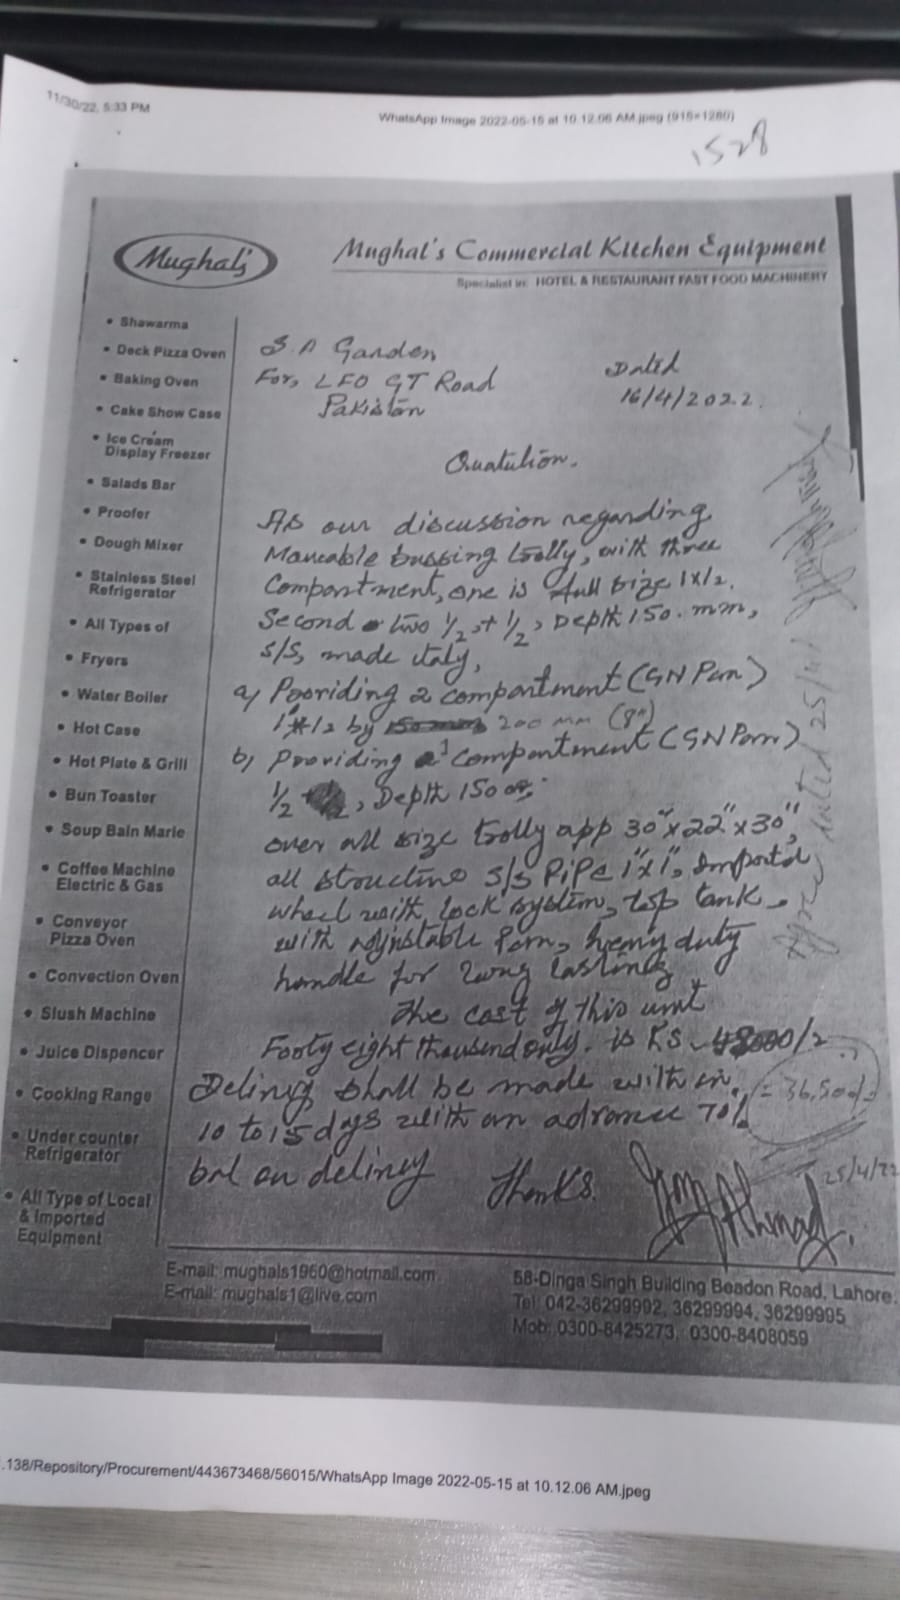 11/30/22, 5:33 PM
WhatsApp Image 2022-05-15 at 10.12.06 AM.jpeg (915×1280)
1528
Mughal's
Mughal's Commercial Kitchen Equipment
Specialist in: HOTEL & RESTAURANT FAST FOOD MACHINERY
• Shawarma
• Deck Pizza Oven
• Baking Oven
• Cake Show Case
• Ice Cream
Display Freezer
• Salads Bar
• Proofer
• Dough Mixer
• Stainless Steel
Refrigerator
• All Types of
• Fryers
• Water Boiler
• Hot Case
• Hot Plate & Grill
• Bun Toaster
• Soup Bain Marie
• Coffee Machine
Electric & Gas
• Conveyor
Pizza Oven
• Convection Oven
• Slush Machine
• Juice Dispencer
• Cooking Range
• Under counter
Refrigerator
• All Type of Local
& Imported
Equipment
S.A Garden
For, LFO GT Road
Pakistan
Dated
16/4/2022.
Quatution.
As our discussion regarding
Moveable bussing trolly, with three
Compartment, one is full size 1x1/2.
Second two 1/2 + 1/2, Depth 150.mm,
S/S, made italy,
a) Pooriding 2 compartment (GN Pan)
by 200 mm (8")
b) Providing 1 compartment (GN Pan)
1/2, Depth 150
over all size trolly app 30"x22"x30",
all structure S/S PiPe 1"x1", Import'd
wheel with lock system, top tank
with adjustable Pan, heavy duty
handle for long lasting
The cost of this unit
Foorty eight thousand only. is RS 48000/2
= 36,500/=
Delivry shall be made with in
10 to 15 days with an advance 70%
bal on delivry
Thanks.
Ahmad.
25/4/22
dated 25/4/
E-mail: mughals1960@hotmail.com
E-mail: mughals1@live.com
58-Dinga Singh Building Beadon Road, Lahore.
Tel: 042-36299992, 36299994, 36299995
Mob: 0300-8425273, 0300-8408059
.138/Repository/Procurement/443673468/56015/WhatsApp Image 2022-05-15 at 10.12.06 AM.jpeg